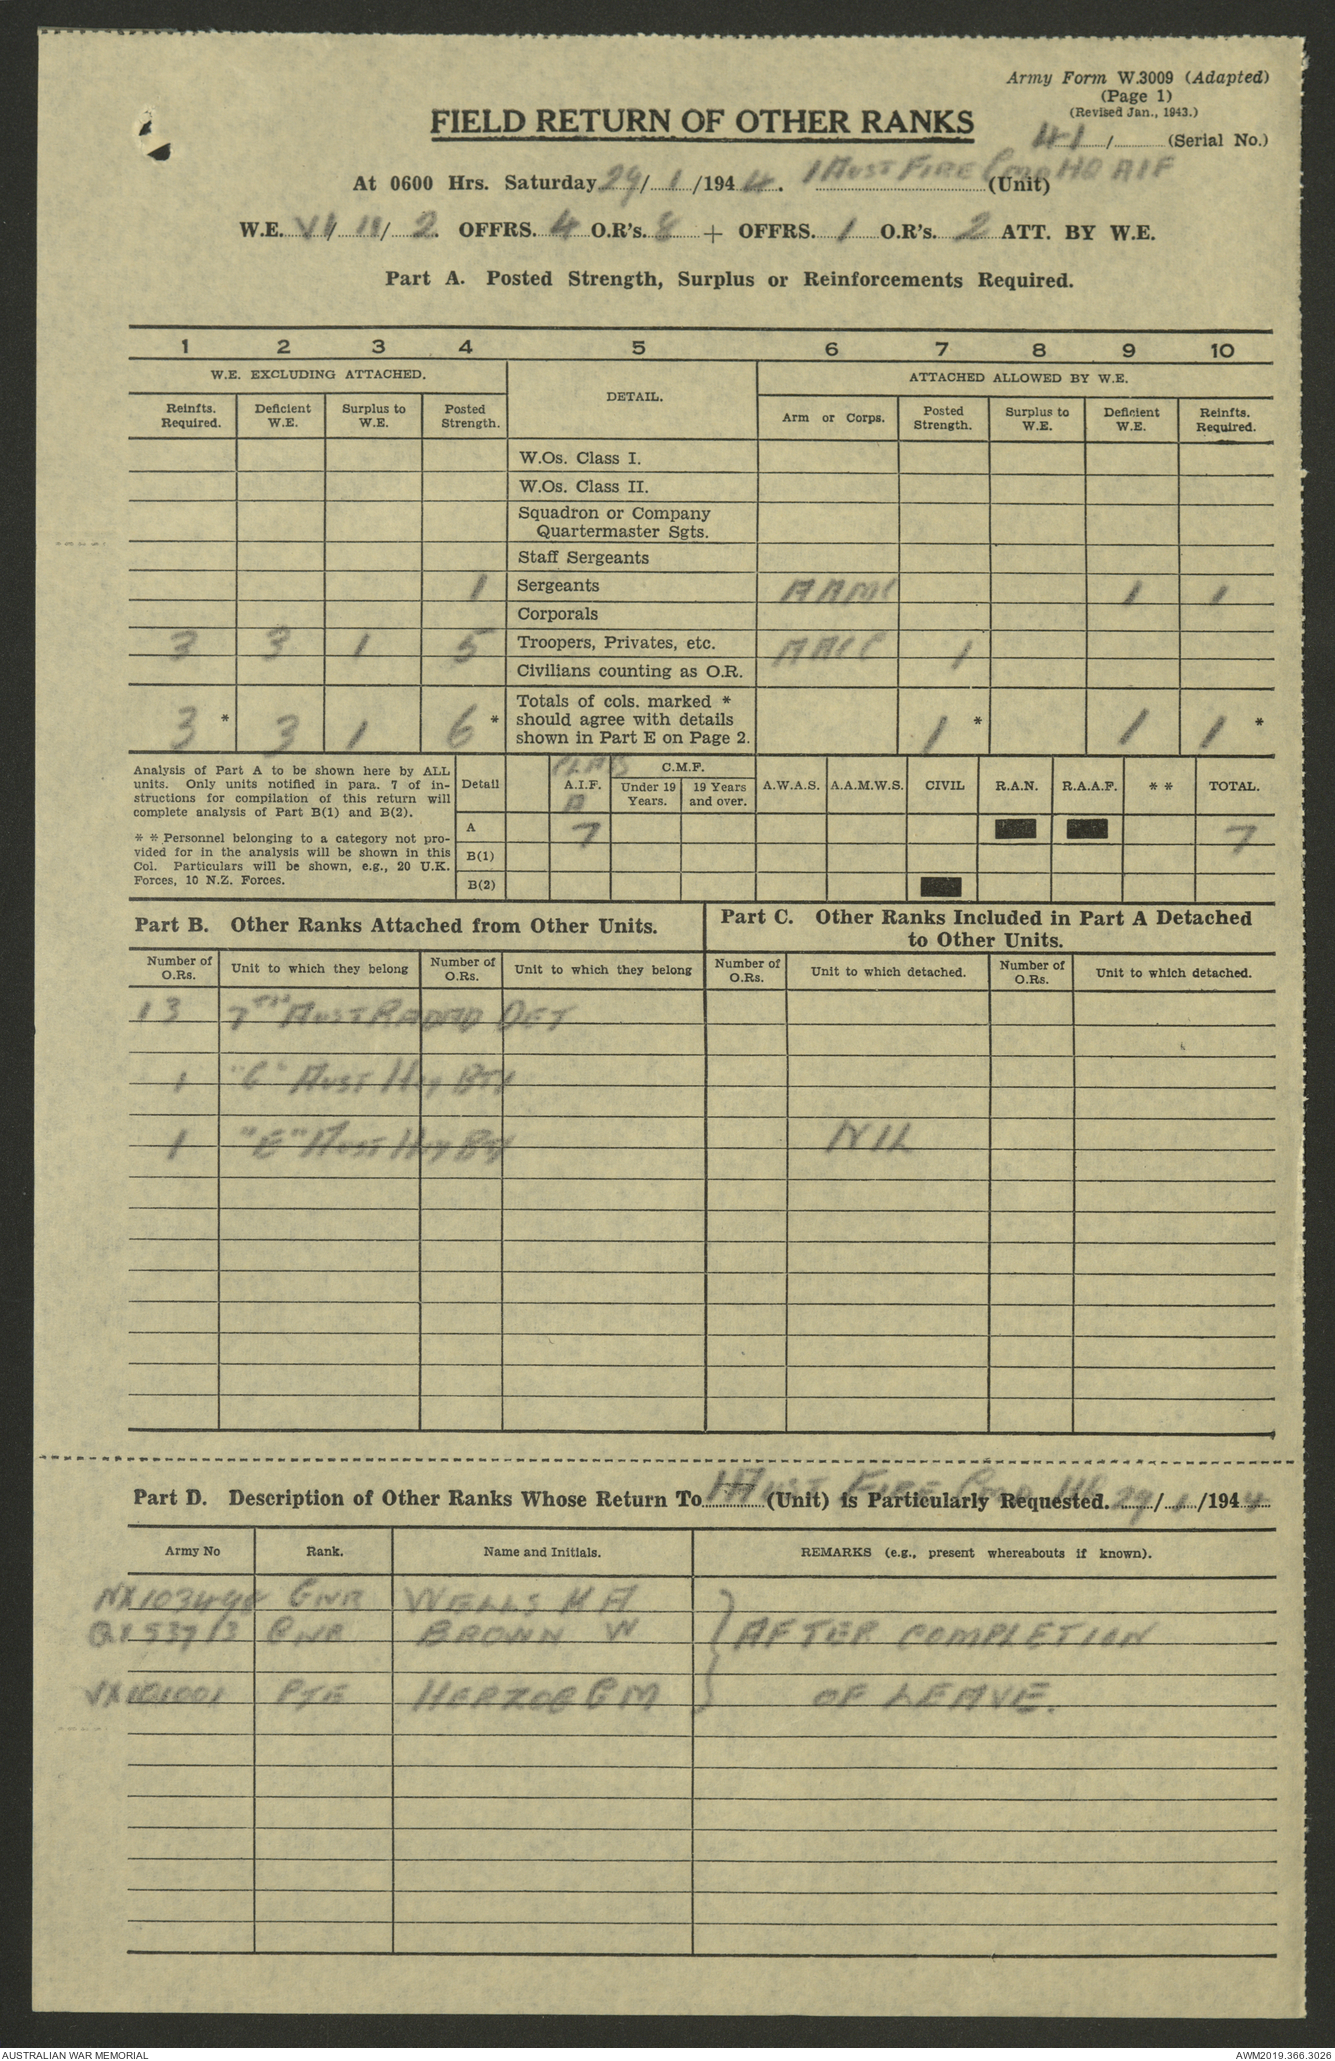 Army Form W.3009 (Adapted)
(Page 1)
(Revised Jan., 1943.)
FIELD RETURN OF OTHER RANKS
41 / (Serial No.)
At 0600 Hrs. Saturday 29/1/1944. 1 AUST FIRE CMD HQ AIF (Unit)
W.E. VI/ /2. OFFRS. 4 O.R's. 8 + OFFRS. 1 O.R's. 2 ATT. BY W.E.
Part A. Posted Strength, Surplus or Reinforcements Required.
1 2 3 4 5 6 7 8 9 10
W.E. EXCLUDING ATTACHED. DETAIL. ATTACHED ALLOWED BY W.E.
Reinfts. Required. Deficient W.E. Surplus to W.E. Posted Strength. Arm or Corps. Posted Strength. Surplus to W.E. Deficient W.E. Reinfts. Required.
W.Os. Class I.
W.Os. Class II.
Squadron or Company
Quartermaster Sgts.
Staff Sergeants
1 Sergeants 1 1
Corporals
3 3 1 5 Troopers, Privates, etc. 1
Civilians counting as O.R.
Totals of cols. marked *
should agree with details
shown in Part E on Page 2.
3 * 3 1 6 * 1 * 1 1 *
Analysis of Part A to be shown here by ALL
units. Only units notified in para. 7 of in-
structions for compilation of this return will
complete analysis of Part B(1) and B(2).
* * Personnel belonging to a category not pro-
vided for in the analysis will be shown in this
Col. Particulars will be shown, e.g., 20 U.K.
Forces, 10 N.Z. Forces.
CLASS
Detail A.I.F. C.M.F. Under 19 Years. 19 Years and over. A.W.A.S. A.A.M.W.S. CIVIL R.A.N. R.A.A.F. * * TOTAL.
A 7 7
B(1)
B(2)
Part B. Other Ranks Attached from Other Units.
Part C. Other Ranks Included in Part A Detached
to Other Units.
Number of O.Rs. Unit to which they belong Number of O.Rs. Unit to which they belong Number of O.Rs. Unit to which detached. Number of O.Rs. Unit to which detached.
13 7TH AUST RADAR DET
1 "C" AUST HVY BTY
1 "E" AUST HVY BTY NIL
Part D. Description of Other Ranks Whose Return To 1 AUST FIRE CMD HQ (Unit) is Particularly Requested. 29/1/1944
Army No Rank. Name and Initials. REMARKS (e.g., present whereabouts if known).
GNR WELLS H A
GNR BROWN W } AFTER COMPLETION
PTE HERZOG G M OF LEAVE.
AUSTRALIAN WAR MEMORIAL
AWM2019.366.3026